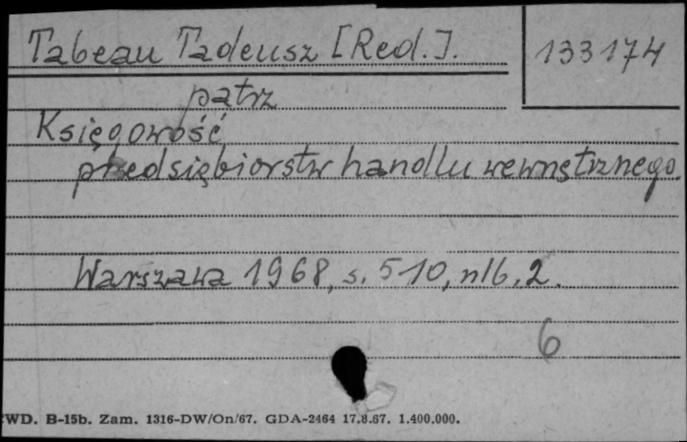 Tabeau Tadeusz [Red.].
133174
patrz
Księgowość
przedsiębiorstw handlu wewnętrznego.
Warszawa 1968, s. 510, nlb. 2.
6
WD. B-15b. Zam. 1316-DW/On/67. GDA-2464 17.8.67. 1.400.000.